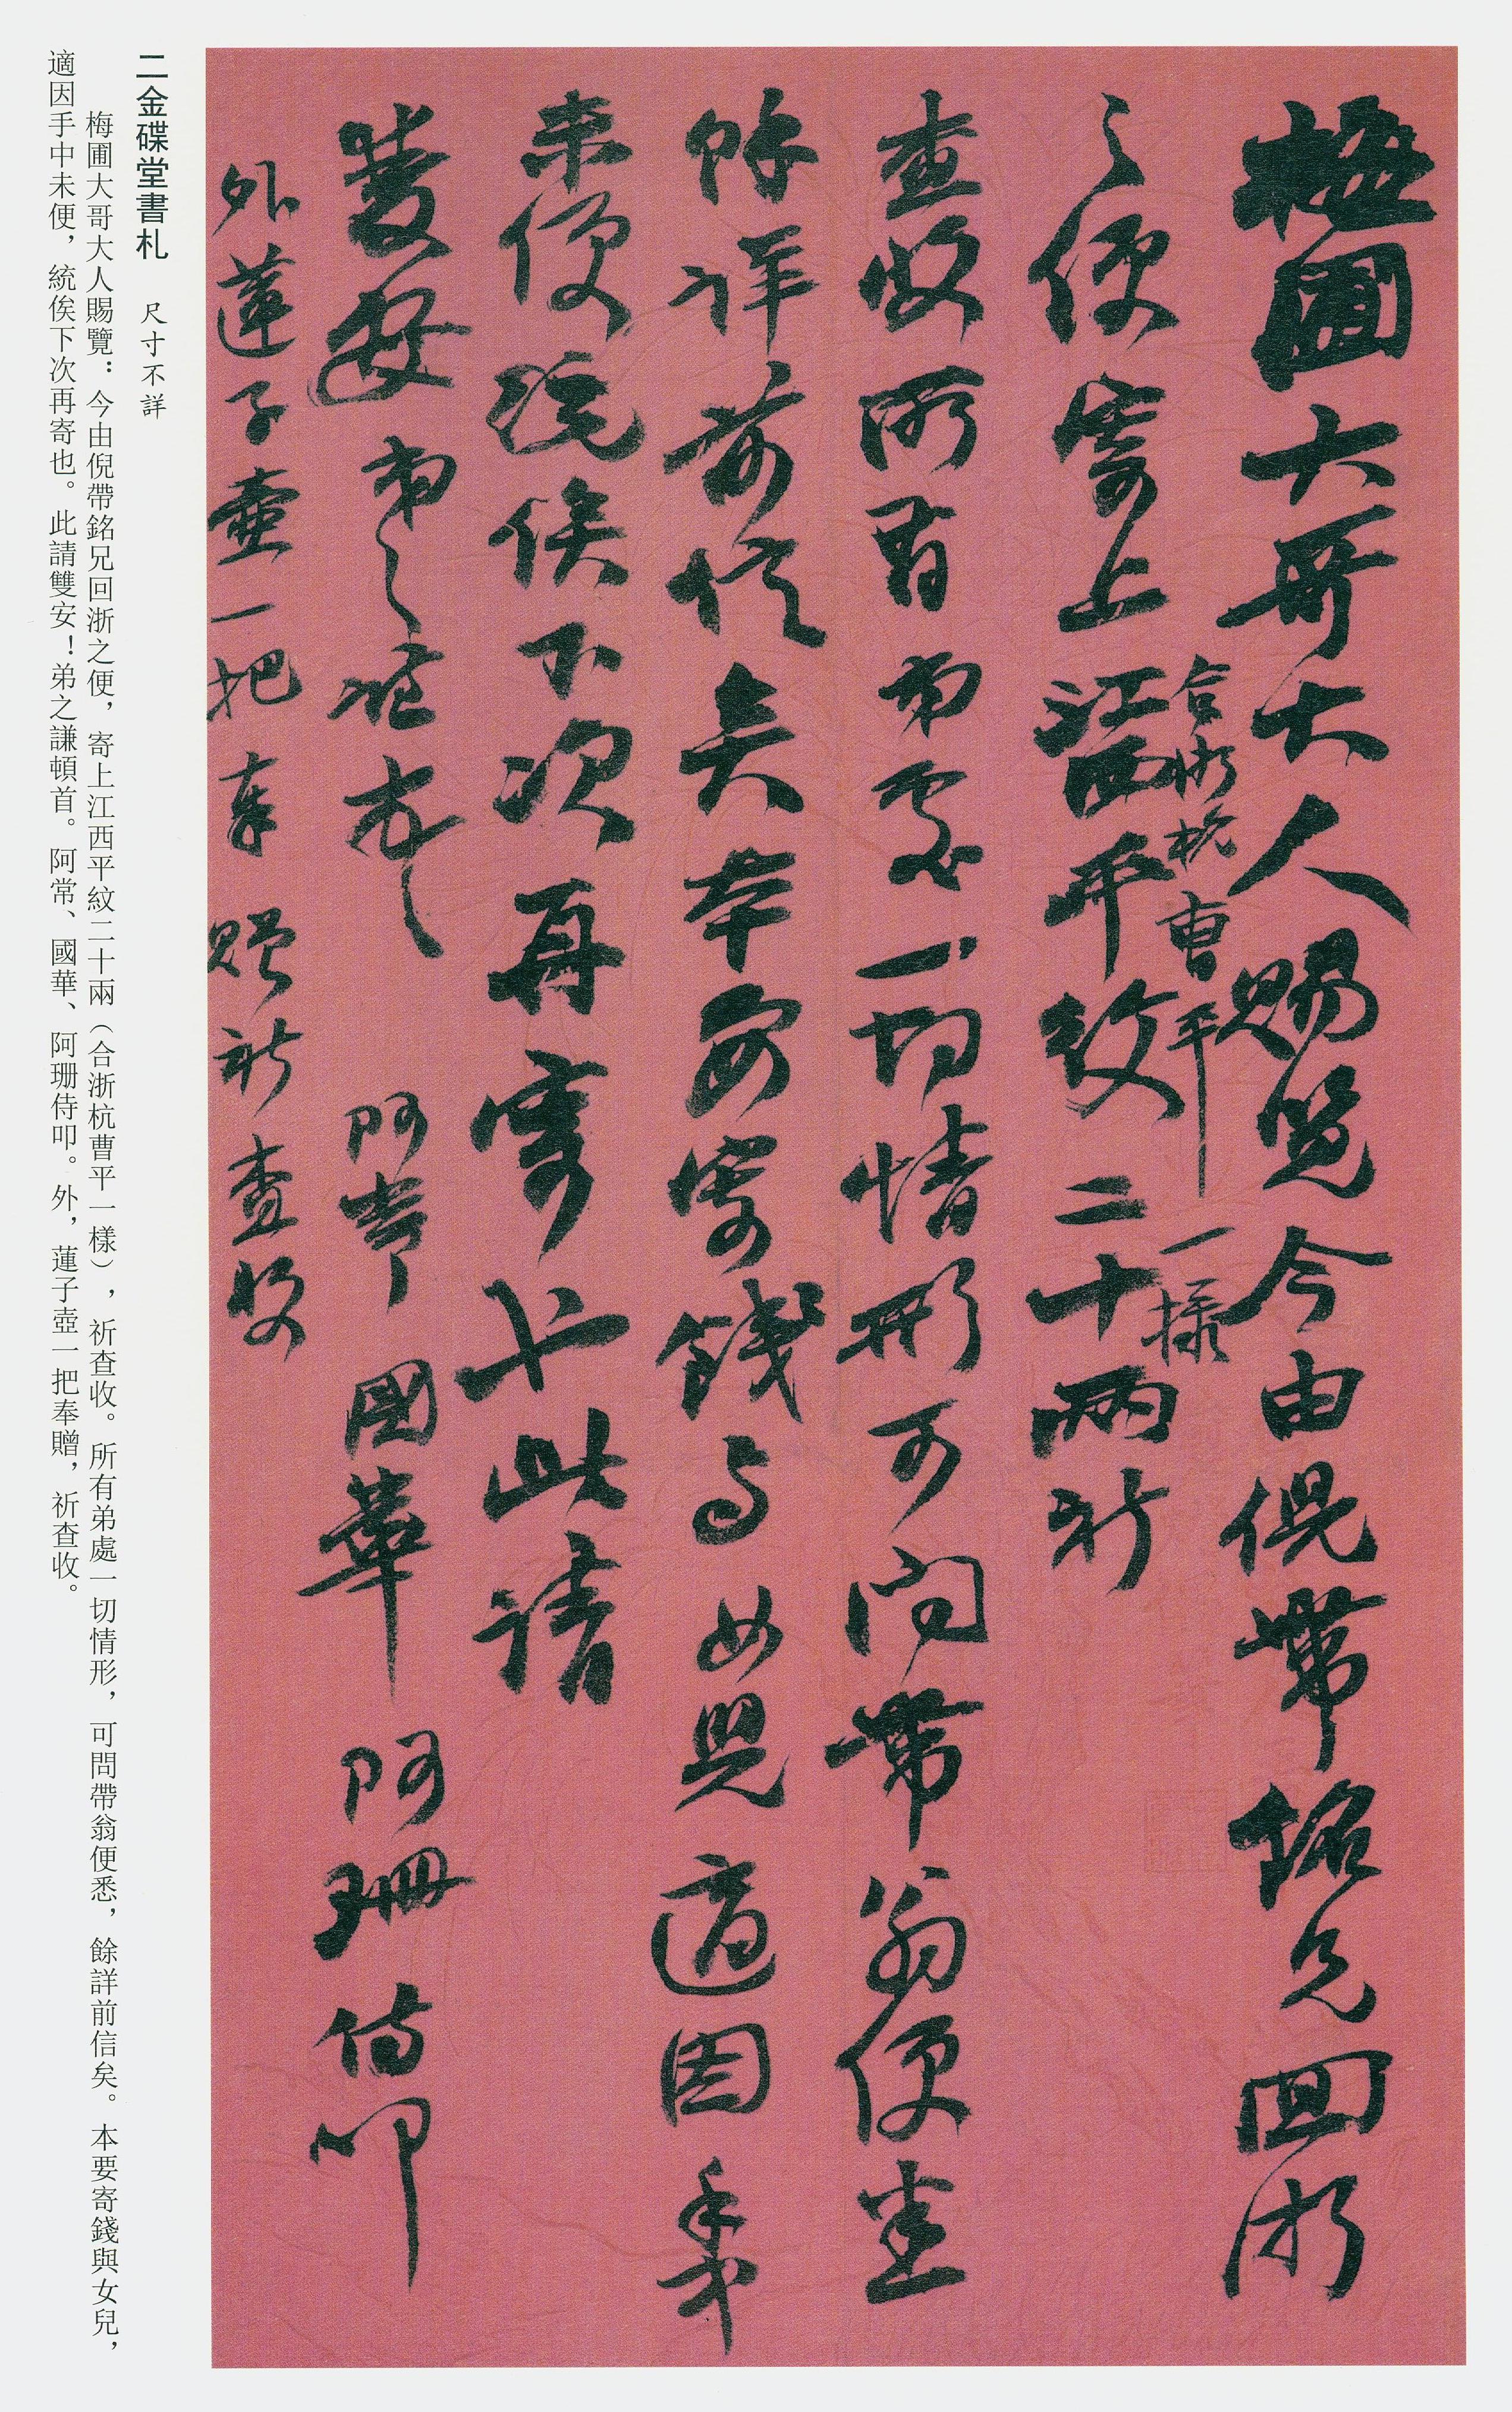 梅圃大哥大人賜覽今由倪帶銘兄回浙
之便寄上江西平紋二十兩祈
合浙杭曹平一樣
查收所有弟處一切情形可問帶翁便悉
餘詳前信矣本要寄錢与女兒適因手中
未便統俟下次再寄也此請
雙安弟之謙頓首 阿常 國華 阿珊侍叩
外蓮子壺一把奉贈祈查收
二金碟堂書札 尺寸不詳
梅圃大哥大人賜覽：今由倪帶銘兄回浙之便，寄上江西平紋二十兩（合浙杭曹平一樣），祈查收。所有弟處一切情形，可問帶翁便悉，餘詳前信矣。本要寄錢與女兒，
適因手中未便，統俟下次再寄也。此請雙安！弟之謙頓首。阿常、國華、阿珊侍叩。外，蓮子壺一把奉贈，祈查收。